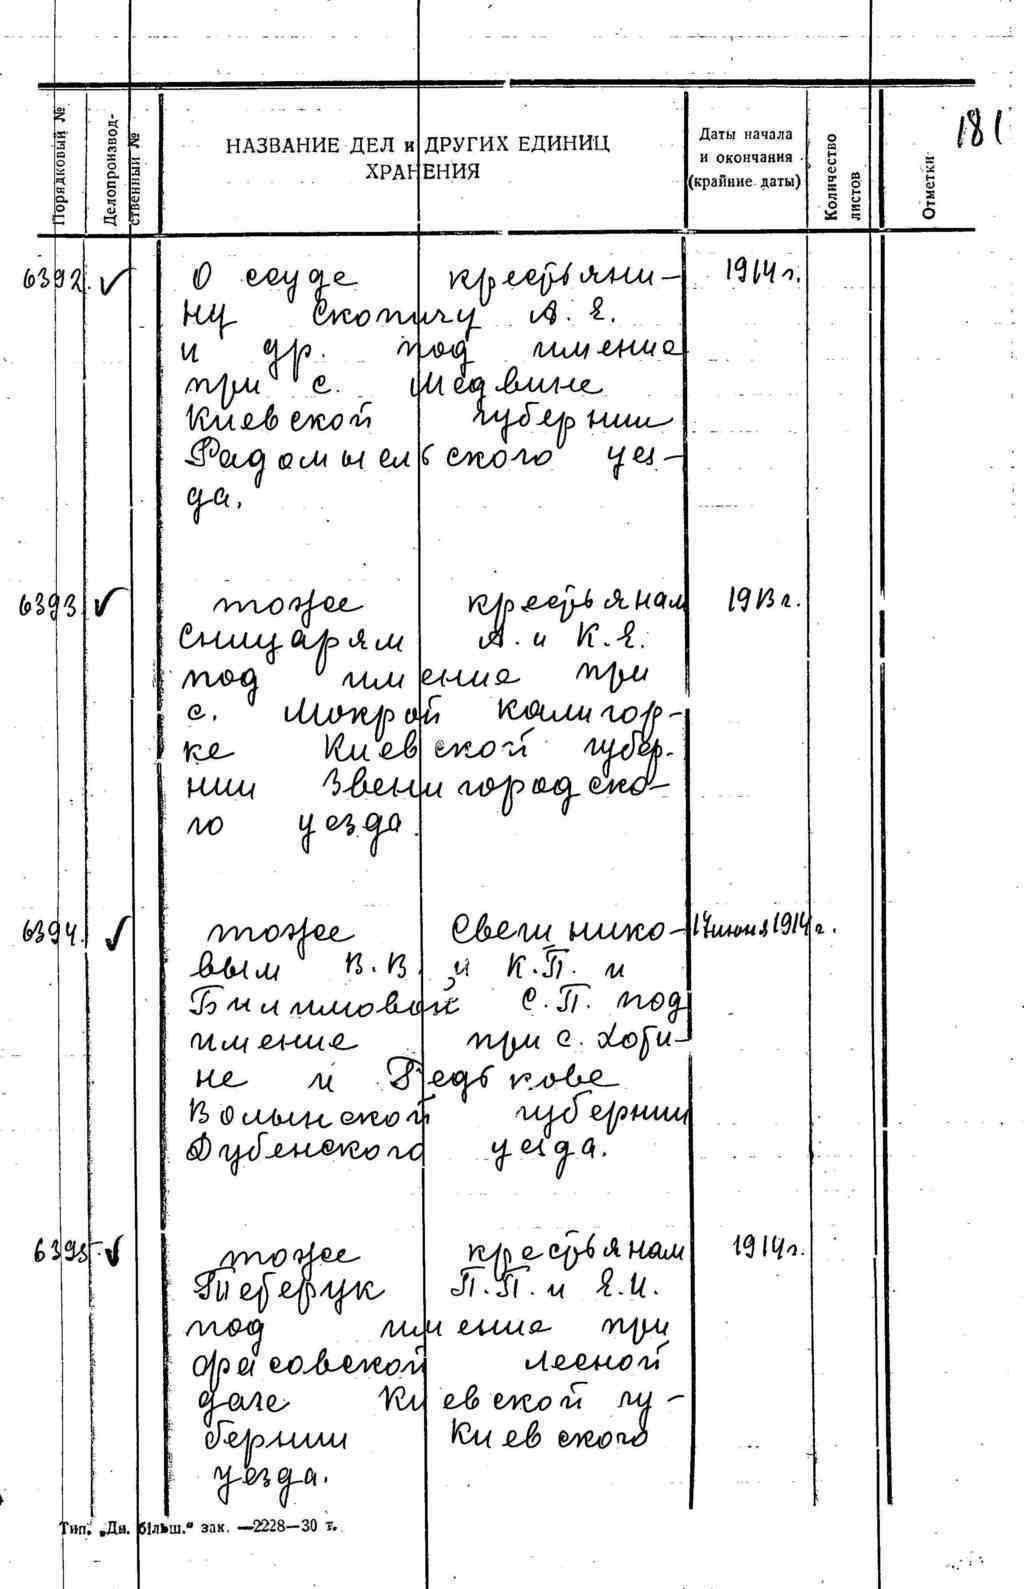 181
Порядковый №
Делопроизвод-
ственный №
НАЗВАНИЕ ДЕЛ и ДРУГИХ ЕДИНИЦ
ХРАНЕНИЯ
Даты начала
и окончания
(крайние даты)
Количество
листов
Отметки
6392. ✓ О ссуде крестьяни- 1914 г.
ну Скопичу А. Е.
и др. под имение
при с. Медвине
Киевской губернии
Радомысльского уез-
да.
6393. ✓ тоже крестьянам 1913 г.
Сницарям А. и К. Е.
под имение при
с. Мокрой Калигор-
ке Киевской губер-
нии Звенигородско-
го уезда
6394. ✓ тоже Свешнико- 14 июня 1914 г.
вым В. В. и К. П. и
Билимовой С. П. под
имение при с.
не и Редькове
Волынской губернии
Дубенского уезда.
6395. ✓ тоже крестьянам 1914 г.
Тетерук П. П. и Е. И.
под имение при
лесной
даче Киевской гу-
бернии Киевского
уезда.
Тип. „Дн. більш." зак. —2228—30 т.